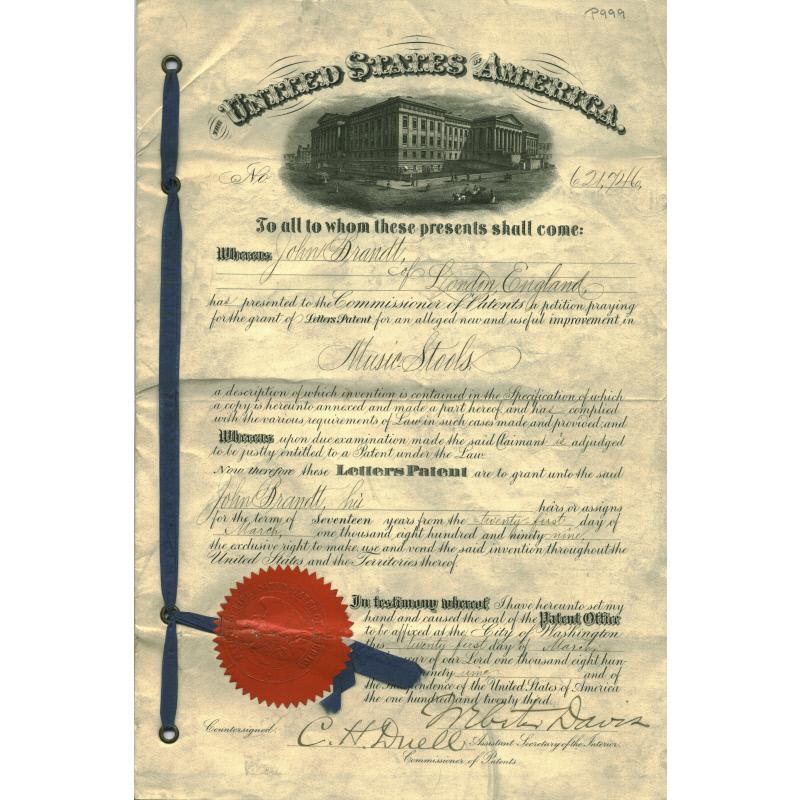 P999
THE UNITED STATES OF AMERICA.
No 621,746,
To all to whom these presents shall come:
Whereas John Brandt,
of London, England,
has presented to the Commissioner of Patents a petition praying
for the grant of Letters Patent for an alleged new and useful improvement in
Music Stools
a description of which invention is contained in the Specification of which
a copy is hereunto annexed and made a part hereof, and has complied
with the various requirements of Law in such cases made and provided, and
Whereas upon due examination made the said Claimant is adjudged
to be justly entitled to a Patent under the Law.
Now therefore these Letters Patent are to grant unto the said
John Brandt, his
heirs or assigns
for the term of Seventeen years from the twenty first day of
March, one thousand eight hundred and ninety nine,
the exclusive right to make, use and vend the said invention throughout the
United States and the Territories thereof.
In testimony whereof, I have hereunto set my
hand and caused the seal of the Patent Office
to be affixed at the City of Washington
this twenty first day of March,
year of our Lord one thousand eight hun-
ninety nine and of
the Independence of the United States of America
the one hundred and twenty third.
Webster Davis
Countersigned C. H. Duell Assistant Secretary of the Interior.
Commissioner of Patents